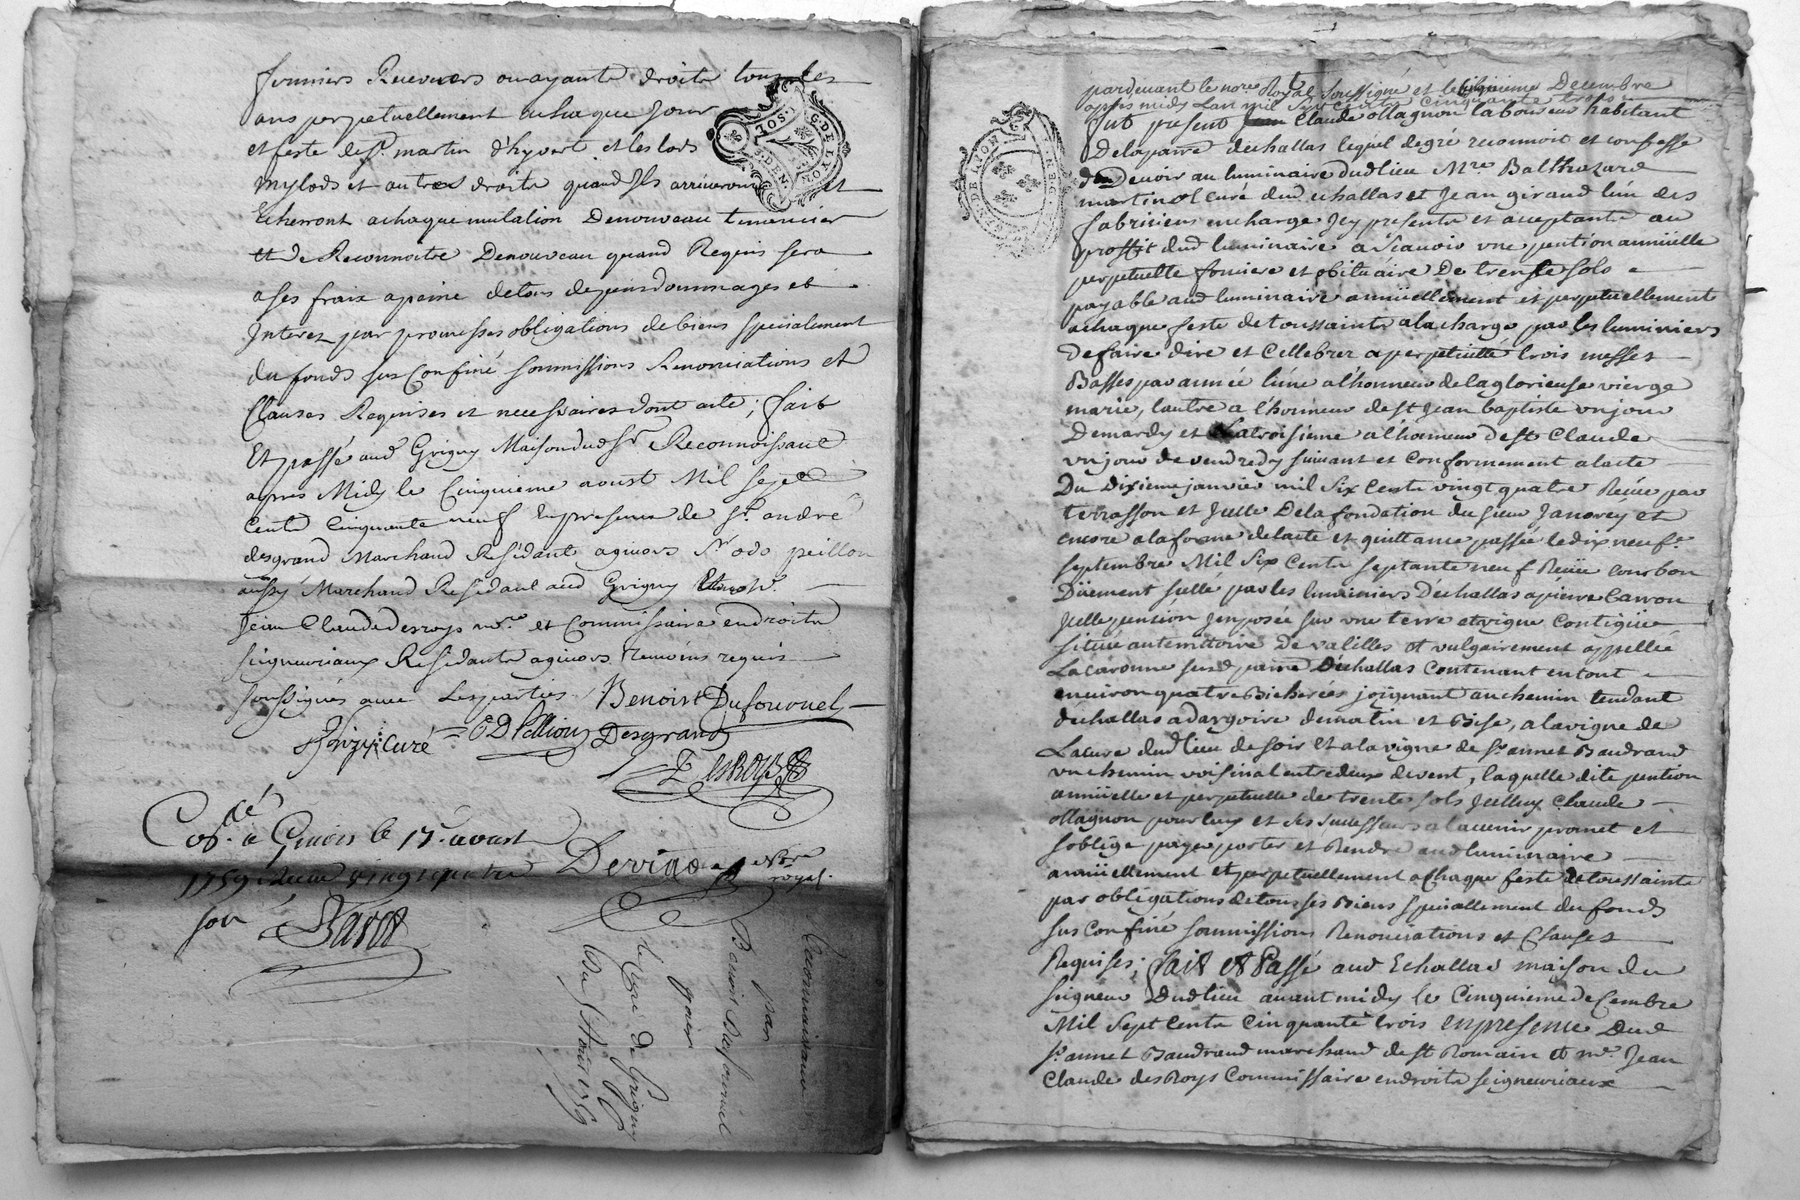 fermiers Receveurs ou ayants droits tous les
ans perpetuellement a chaque jour
et feste de St martin d'hyvert et les lods
mylods et autres droits quand Ils arriveront et
Echerront a chaque mutation De nouveau tenancier
et de Reconnoitre De nouveau quand Requis sera
a ses fraix a peine de tous depens dommages et
Interez par promesses obligations de biens specialement
du fonds sus Confiné soumissions Renonciations et
Clauses Requises et necessaires dont acte; fait
Et passé aud Grigny Maison dud Sr Reconnoissant
apres Midy le Cinquieme aoust Mil sept
Cents Cinquante neuf En presence de Sr andré
desgrand Marchand Residant a givors Sr odo peillon
aussy Marchand Residant aud Grigny Et
Jean Claude desroys nre et Commissaire en droits
seigneuriaux Residants a givors temoins requis
soussignés avec Les parties Benoist Dufournel
curé Peillion Desgrand
DesRoys
Colé a Givors le 17 aoust
1759 Receu vingt quatre
sols
Devinoe Nore royal
Reconnaissance
par
Benoist Dufournel
pour
le Curé de Grigny
Du 5 Aoust 1759
G. DE LYON
pardevant le nore Royal soussigné et le Cinquieme Decembre
apres midy Lan mil sept cents cinquante trois
fut present Claude ollagnon laboureur habitant
De la parre dechallas lequel de gré reconnoit et confesse
Devoir au luminaire dudlieu Mre Balthazard
martinol curé dud echallas et Jean giraud l'un des
fabriciens en charge Icy presents et acceptants au
proffit dud luminaire a scavoir une pention annüelle
perpetuelle fonciere et obituaire De trente sols
payable aud luminaire annüellement et perpetuellement
a chaque feste de toussaints a la charge par les luminiers
De faire dire et Cellebrer a perpetuité trois messes
Basses par année l'une a l'honneur de la glorieuse vierge
marie, l'autre a l'honneur de st Jean baptiste un jour
De mardy et la troisieme a l'honneur de st Claude
un jour de vendredy suivant et conformement a l'acte
Du Dixieme janvier mil six cents vingt quatre Reçüe par
terrasson et Jcelle De la fondation du sieur Janorey et
encore a la forme de l'acte et quittance passée le dix neuf
septembre Mil six Cents septante neuf Reçüe courbon
Düement sellé par les luminiers D'echallas a pierre Carron
Jcelle pension Imposée sur une terre et vigne contigüe
située au territoire de valelles et vulgairement appellée
La caronne susd parre D'echallas contenant en tout
environ quatre Bicherées joignant au chemin tendant
dechallas a dargoire de matin et Bise, a la vigne de
La cure dud lieu de soir Et a la vigne de Sr annet Baudrand
un chemin voisinal entredeux de vent, laquelle dite pention
annüelle et perpetuelle de trente sols Jcelluy Claude
ollagnon pour luy et ses successeurs a l'avenir promet et
s'oblige payer porter et Rendre aud luminaire
annüellement et perpetuellement a Chaque feste de toussaints
par obligations de tous ses Biens specialement du fonds
sus confiné soumissions Renonciations et Clauses
Requises; fait et Passé aud Echallas maison du
seigneur Dudlieu avant midy le Cinquieme decembre
Mil Sept cents Cinquante trois en presence Dud
Sr annet Baudrand marchand de st Romain et Mre Jean
Claude desRoys Commissaire en droits seigneuriaux